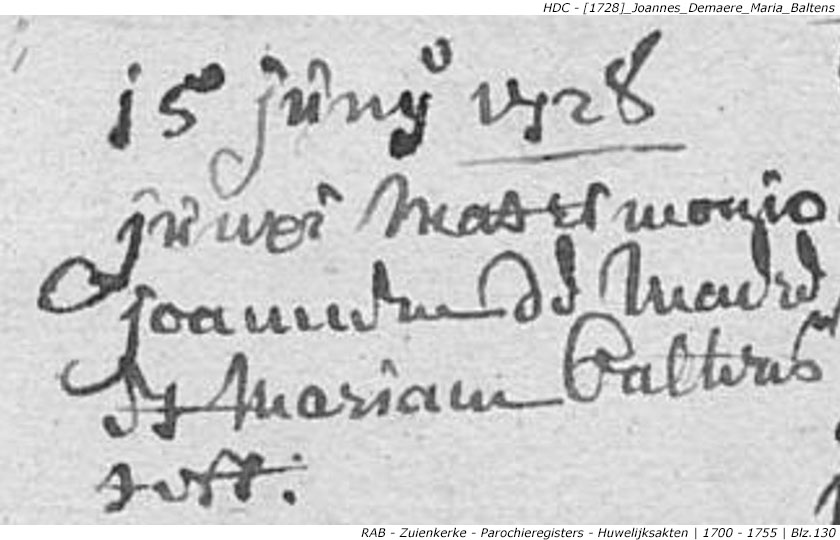 HDC - [1728]_Joannes_Demaere_Maria_Baltens
15 junij 1728
junxi matrimonio
joannem de maere
et mariam Baltens
test:
RAB - Zuienkerke - Parochieregisters - Huwelijksakten | 1700 - 1755 | Blz.130